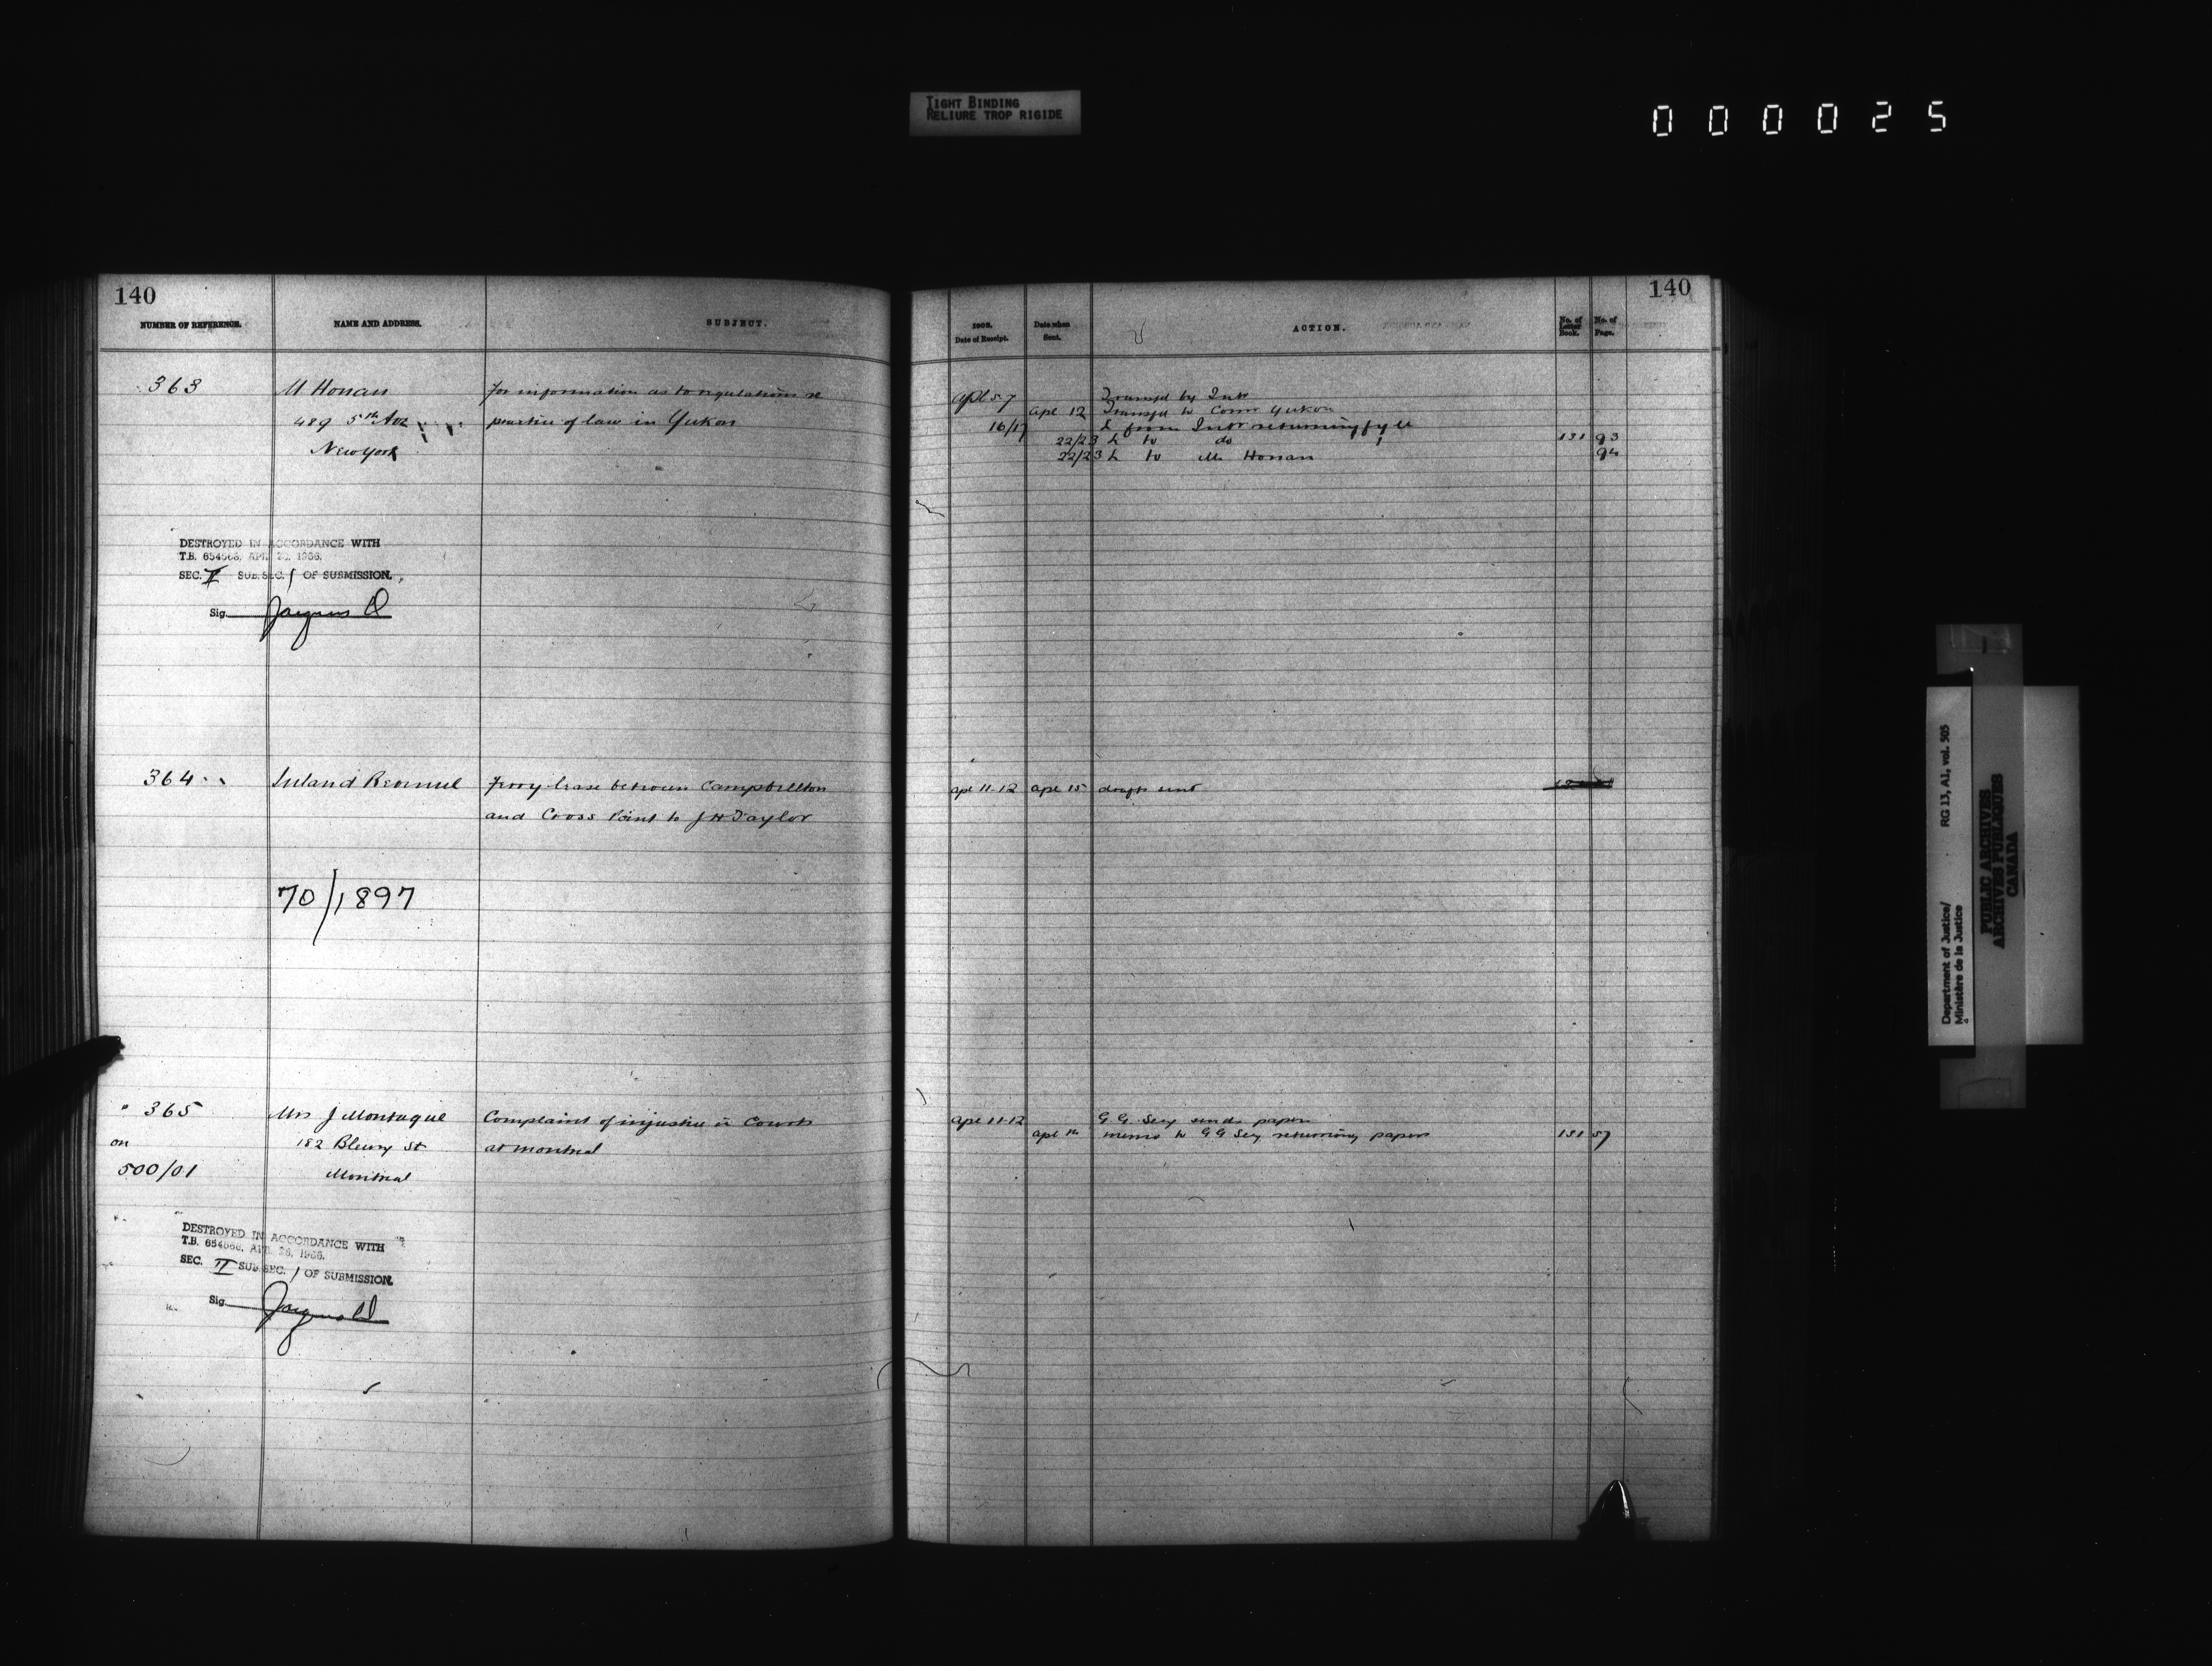 TIGHT BINDING
RELIURE TROP RIGIDE
000025
140
NUMBER OF REFERENCE.
NAME AND ADDRESS.
SUBJECT.
363
M Honan
For information as to regulations re
489 5th Ave
practice of law in Yukon
New York
DESTROYED IN ACCORDANCE WITH
T.B. 654568, APR. 26, 1966.
SEC. II SUB. SEC. 1 OF SUBMISSION.
Sig.
364
Inland Revenue
Ferry lease between Campbellton
and Cross Point to J H Taylor
70/1897
365
Mrs J Montague
Complaint of injustice in Courts
on
182 Bleury St
at Montreal
500/01
Montreal
DESTROYED IN ACCORDANCE WITH
T.B. 654568, APR. 26, 1966.
SEC. II SUB. SEC. 1 OF SUBMISSION.
Sig.
140
Date of Receipt.
Date when Sent.
ACTION.
No. of Letter Book.
No. of Page.
Apl 5-7 by Intr
Apl 12 to Comr Yukon
16/17 L from Intr returning fyle
22/23 L to do 131 93
22/23 L to M Honan 94
Apl 11-12 Apl 15 draft sent
Apl 11-12 G. G. Secy sends papers
Apl memo to G G Secy returning papers 131 57
Department of Justice/
Ministère de la Justice
RG 13, A1, vol. 505
PUBLIC ARCHIVES
ARCHIVES PUBLIQUES
CANADA